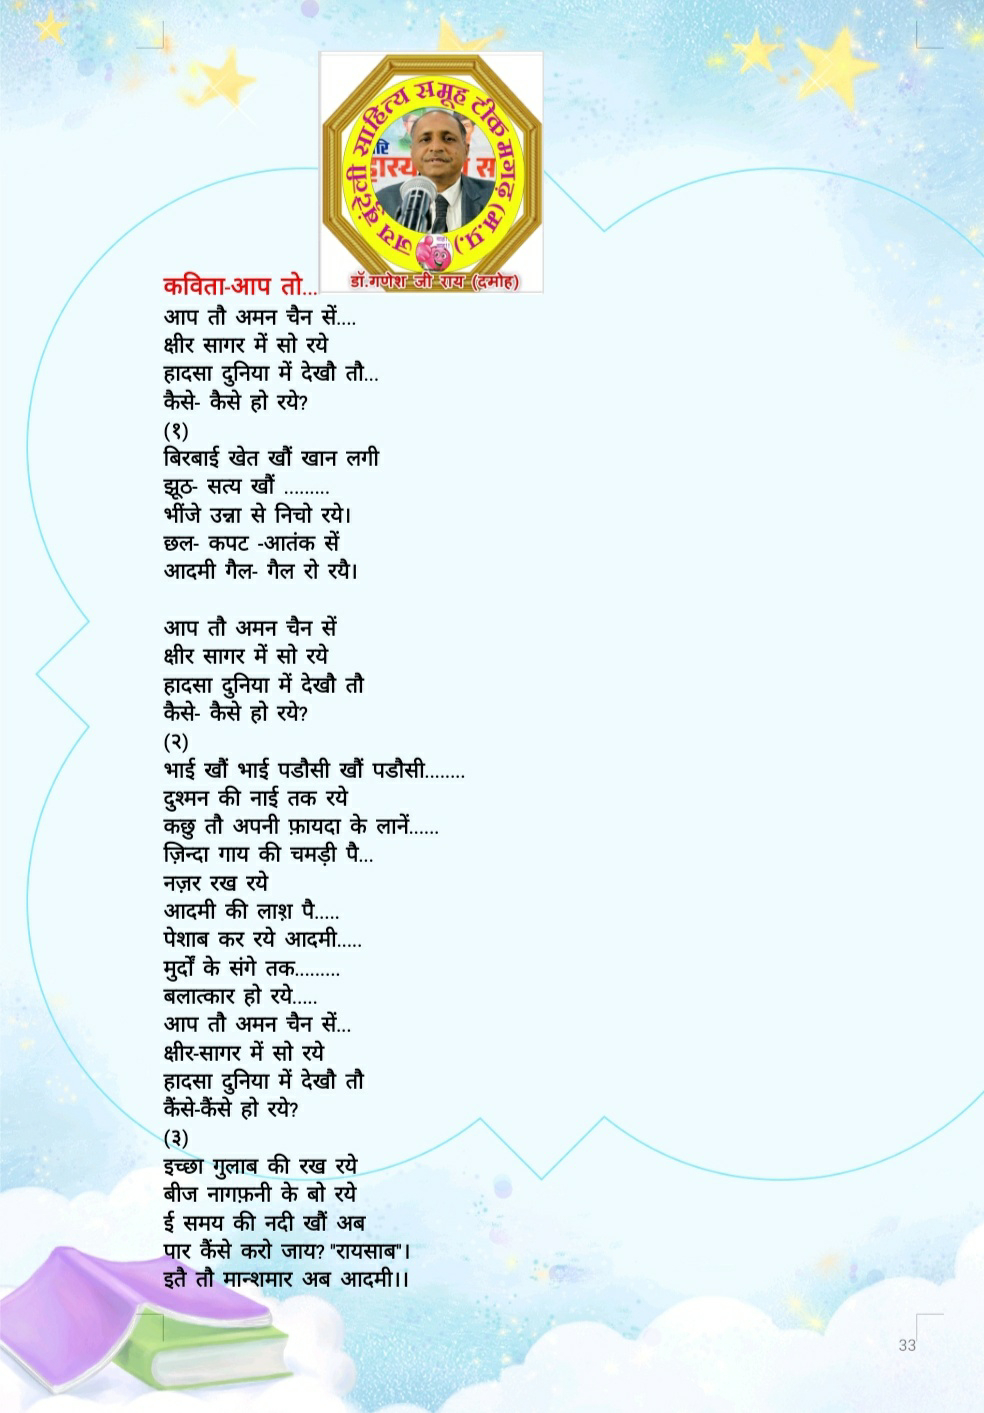 जय बुंदेली साहित्य समूह टीकमगढ़ (म.प्र.)
डॉ.गणेश जी राय (दमोह)
कविता-आप तो...
आप तौ अमन चैन सें....
क्षीर सागर में सो रये
हादसा दुनिया में देखौ तौ...
कैसे- कैसे हो रये?
(१)
बिरबाई खेत खौं खान लगी
झूठ- सत्य खौं .........
भींजे उन्ना से निचो रये।
छल- कपट -आतंक सें
आदमी गैल- गैल रो रयै।
आप तौ अमन चैन सें
क्षीर सागर में सो रये
हादसा दुनिया में देखौ तौ
कैसे- कैसे हो रये?
(२)
भाई खौं भाई पडौसी खौं पडौसी........
दुश्मन की नाई तक रये
कछु तौ अपनी फ़ायदा के लानें......
ज़िन्दा गाय की चमड़ी पै...
नज़र रख रये
आदमी की लाश़ पै.....
पेशाब कर रये आदमी.....
मुर्दों के संगे तक.........
बलात्कार हो रये.....
आप तौ अमन चैन सें...
क्षीर-सागर में सो रये
हादसा दुनिया में देखौ तौ
कैंसे-कैंसे हो रये?
(३)
इच्छा गुलाब की रख रये
बीज नागफ़नी के बो रये
ई समय की नदी खौं अब
पार कैंसे करो जाय? "रायसाब"।
इतै तौ मान्शमार अब आदमी।।
33